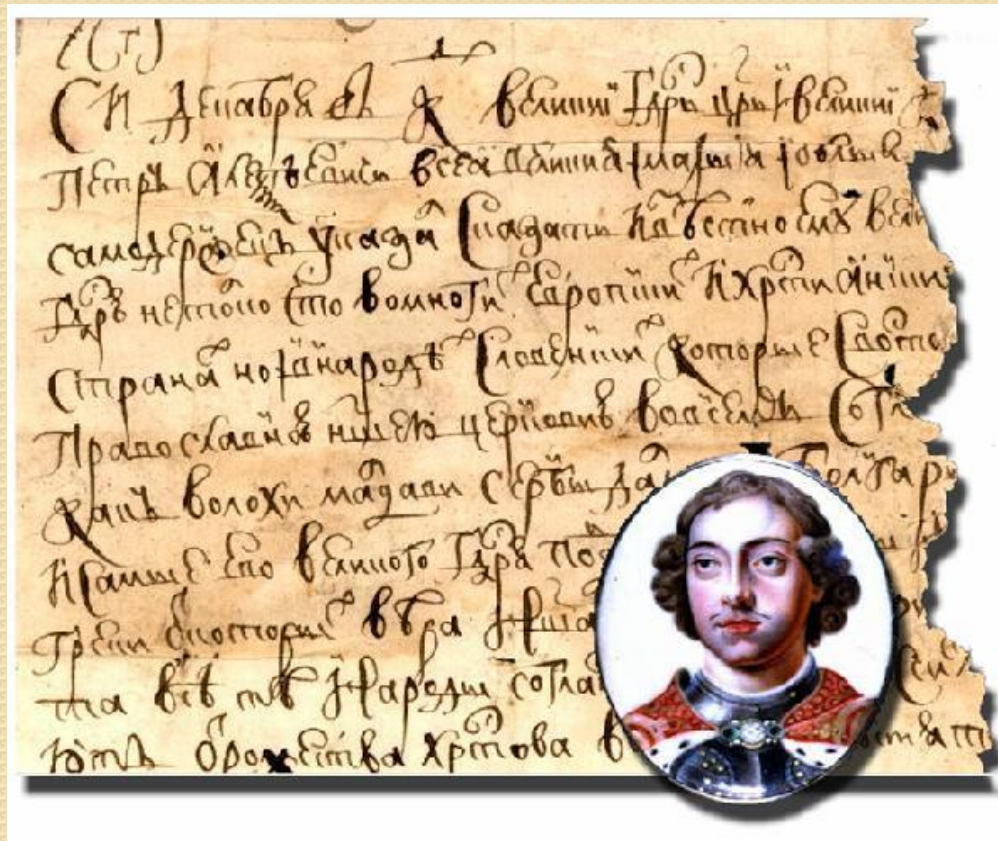 СИ декабря въ К великий Гдрь црь и великий
Петръ Алеѯѣевичь всеа великия и малыя и бѣлыя
самодержецъ указа сказати извѣстно ему вели
Гдрю не толко что во многи европски и христиански
страна но и в народѣ словенски которые с восто
православною ншею церковию во всемъ согла
какъ волохи малдави сербы да болгар
и самые его великого Гдря по
греки от которы вѣра нша
та всѣ тѣ народы согла
ютъ от рожества христова в